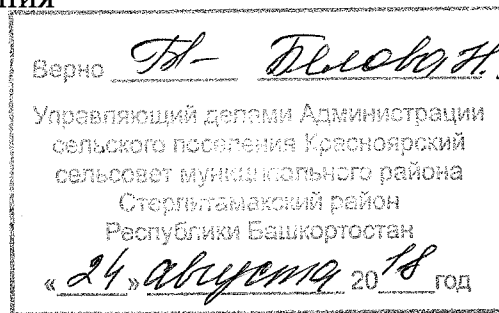 ния
Верно Белова Н.
Управляющий делами Администрации
сельского поселения Красноярский
сельсовет муниципального района
Стерлитамакский район
Республики Башкортостан
«24» августа 2018 год